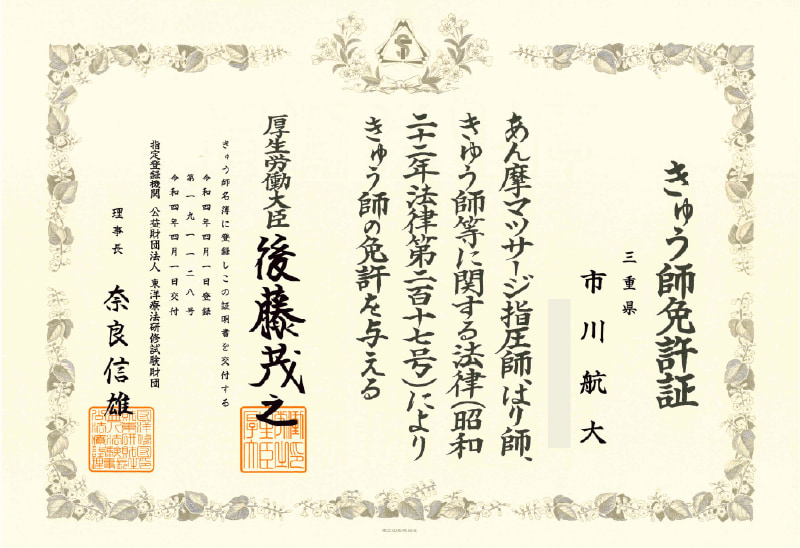 きゅう師免許証
三重県
市川航大
あん摩マツサージ指圧師、はり師、
きゆう師等に関する法律(昭和
二十二年法律第二百十七号)により
きゅう師の免許を与える
厚生労働大臣 後藤茂之
きゅう師名簿に登録しこの証明書を交付する
令和四年四月一日登録
第一九一一二八号
令和四年四月一日交付
指定登録機関 公益財団法人 東洋療法研修試験財団
理事長 奈良信雄